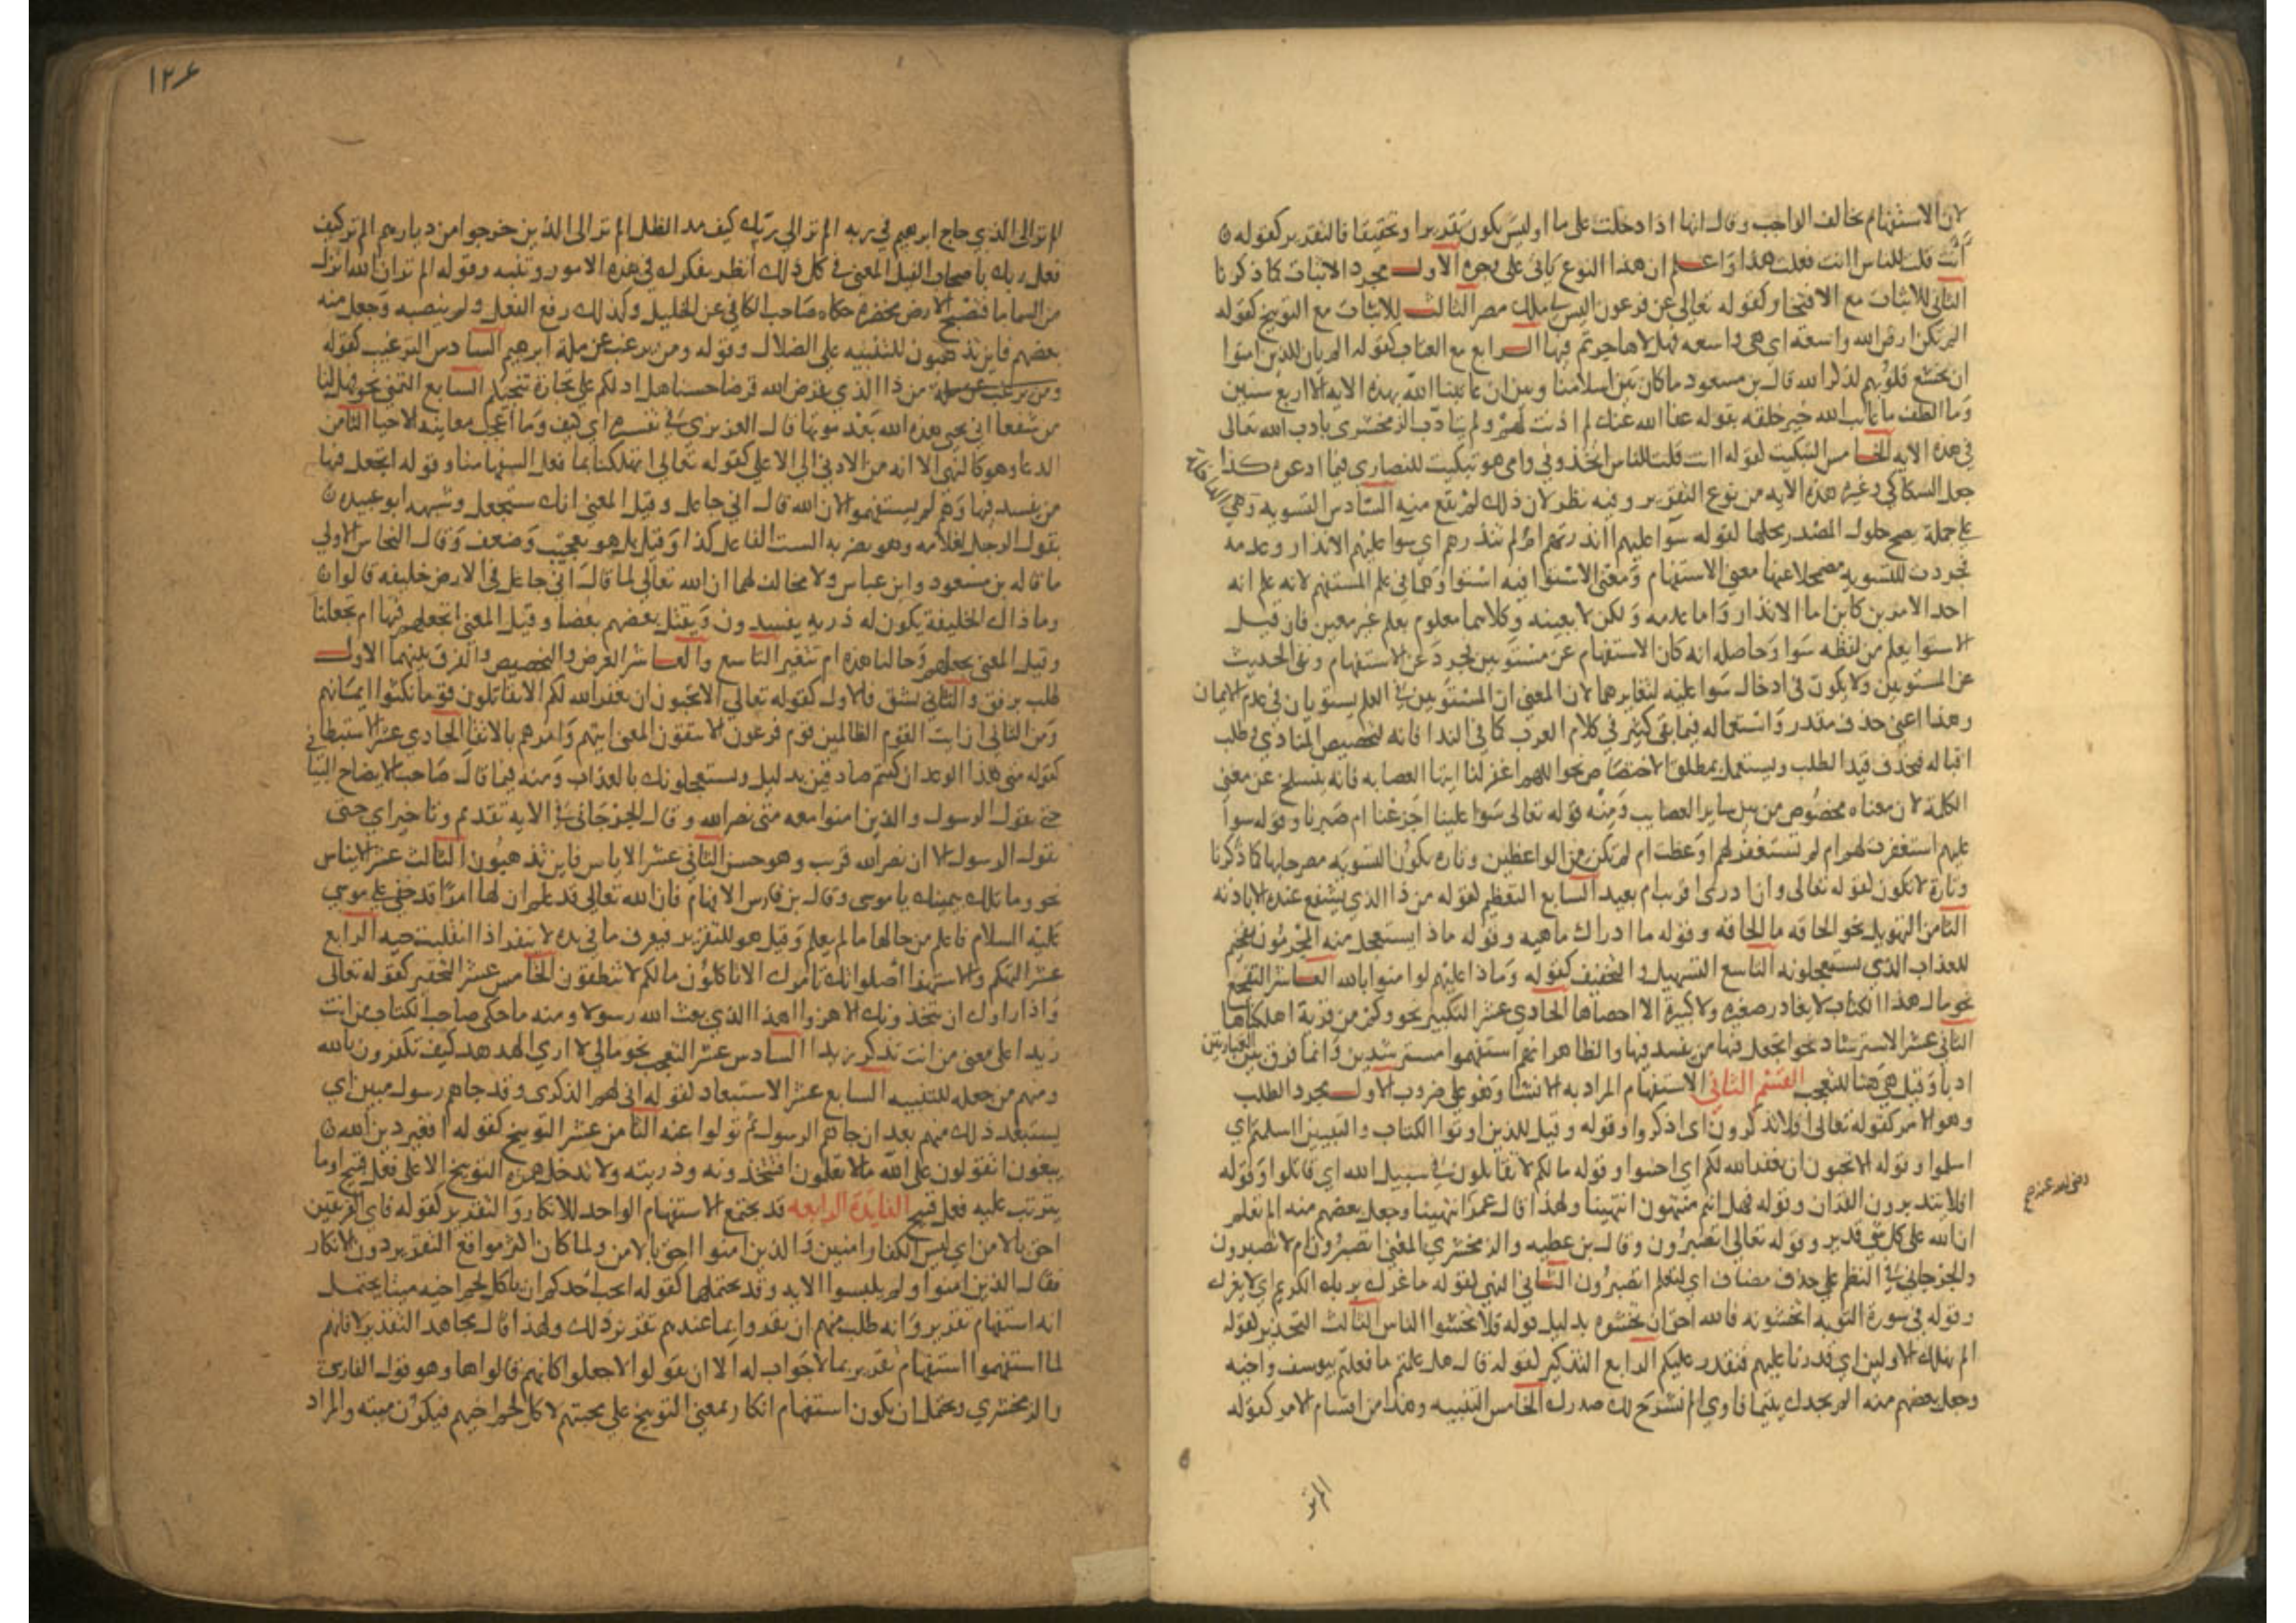 لان الاستفهام يخالف الواجب وقال انها اذا دخلت على ما او ليس يكون تقديرا وتحقيقا فالتقدير كقوله
أنت قلت للناس اانت فعلت هذا واعلم ان هذا النوع ياتى على وجوه الاول مجرد الاثبات كما ذكرنا
الثاني للاثبات مع الافتخار كقوله تعالى عن فرعون اليس لي ملك مصر الثالث للاثبات مع التوبيخ كقوله
الم تكن ارض الله واسعة اى هى واسعه فهلا هاجرتم فيها الرابع مع العتاب كقوله الم يان للذين امنوا
ان تخشع قلوبهم لذكر الله قال بن مسعود ماكان بين اسلامنا وبين ان عاتبنا الله بهذه الايه الا اربع سنين
وما الطف ما عاتب الله خير خلقه بقوله عفا الله عنك لم اذنت لهم ولم يتادب الزمخشرى بادب الله تعالى
فى هذه الايه الخامس التبكيت كقوله اانت قلت للناس اتخذوني وامى هو تبكيت للنصارى فيما ادعوه كذا
جعل السكاكي وغيره هذه الايه من نوع التقرير وفيه نظر لان ذلك لم يقع منه السادس التسوية وهى
على جملة يصح حلول المصدر محلها كقوله سوا عليهم اانذرتهم ام لم تنذرهم اي سوا عليهم الانذار وعدمه
تجردت للتسويه مضمحلا عنها معنى الاستفهام ومعنى الاستوا فيه استواوهما في علم المستفهم لانه علم انه
احد الامرين كاين اما الانذار واما عدمه ولكن لا بعينه وكلاهما معلوم بعلم غير معين فان قيل
الاستوا يعلم من لفظه سوا وحاصله انه كان الاستفهام عن مستويين فجرد عن الاستفهام وبقى الحديث
عن المستويين ولا يكون فى ادخال سوا عليه لتغايرهما لان المعنى ان المستويين في العلم يستويان فى عدم الايمان
وهذا اعنى حذف مقدر واستعماله فيما بقى كثير في كلام العرب كما فى الندا فانه لتخصيص المنادي وطلب
اقباله فيحذف قيد الطلب ويستعمل بمطلق الاختصاص نحو اللهم اغفر لنا ايتها العصابه فانه ينسلخ عن معنى
الكلمة لان معناه مخصوص من بين ساير العصايب ومنه قوله تعالى سوا علينا اجزعنا ام صبرنا وقوله سوا
عليهم استغفرت لهم ام لم تستغفر لهم اوعظت ام لم تكن من الواعظين وتاره يكون التسويه مصرحا بها كما ذكرنا
وتارة لا تكون كقوله تعالى وان ادرى اقريب ام بعيد السابع التعظيم كقوله من ذا الذي يشفع عنده الا باذنه
الثامن التهويل نحو الحاقه ما الحاقه وقوله وما ادراك ماهيه وقوله ماذا يستعجل منه المجرمون تفخيم
للعذاب الذي يستعجلونه التاسع التسهيل والتخفيف كقوله وماذا عليهم لو امنوا بالله العاشر التفجع
نحو مال هذا الكتاب لا يغادر صغيره ولا كبيرة الا احصاها الحادي عشر التكثير نحو وكم من قرية اهلكناها
الثانى عشر الاسترشاد نحو اتجعل فيها من يفسد فيها والظاهر انهم استفهموا مسترشدين وانما فرق بين العبارتين
ادبا وقيل هي هنا للتعجب القسم الثاني الاستفهام المراد به الانشا وهو على ضروب الاول مجرد الطلب
وهو الامر كقوله تعالى افلا تذكرون اى اذكروا وقوله وقيل للذين اوتوا الكتاب والاميين ااسلمتم اي
اسلموا وقوله الا تحبون ان يغفر الله لكم اي احبوا وقوله مالكم لا تقاتلون في سبيل الله اي قاتلوا وقوله
افلا يتدبرون القران وقوله فهل انتم منتهون انتهينا ولهذا قال عمر انتهينا وجعل بعضهم منه الم تعلم
رضى الله عنه صح
ان الله على كل شي قدير وقوله تعالى اتصبرون وقال بن عطيه والزمخشري المعنى اتصبرون ام لا تصبرون
والجرجاني في النظم على حذف مضاف اي لنعلم اتصبرون الثاني النهي كقوله ما غرك بربك الكريم اي لا يغرك
وقوله فى سورة التوبه اتخشونه فالله احق ان تخشوه بدليل قوله فلا تخشوا الناس الثالث التحذير كقوله
الم نهلك الاولين اي قدرنا عليهم فنقدر عليكم الرابع التذكير كقوله قال هل علمتم ما فعلتم بيوسف واخيه
وجعل بعضهم منه الم يجدك يتيما فاوي الم نشرح لك صدرك الخامس التنبيه وهذا من اقسام الامر كقوله
الم تر
١٢٤
الم تر الى الذي حاج ابرهيم في ربه الم تر الي ربك كيف مد الظل الم تر الى الذين خرجوا من ديارهم الم تر كيف
فعل ربك باصحاب الفيل المعنى في كل ذلك انظر بفكرك في هذه الامور وتنبه وقوله الم تر ان الله انزل
من السما ما فتصبح الارض مخضره حكاه صاحب الكافي عن الخليل وكذلك رفع الفعل ولم ينصبه وجعل منه
بعضهم فاين تذهبون للتنبيه على الضلال وقوله ومن يرغب عن ملة ابرهيم السادس الترغيب كقوله
من ذا الذي يقرض الله قرضا حسنا هل ادلكم على تجارة تنجيكم السابع التمني نحو فهل لنا
من شفعا انى يحيي هذه الله بعد موتها قال العزيزي في تفسيره اي كيف وما اعجل معاينة الاحيا الثامن
الدعا وهو كالنهى الا انه من الادنى الي الاعلى كقوله تعالى اتهلكنا بما فعل السفها منا وقوله اتجعل فيها
من يفسد فيها وهم لم يستفهموا لان الله قال اني جاعل وقيل المعنى انك ستجعل وشبهه ابو عبيده
بقول الرجل لغلامه وهو يضربه الست الفاعل كذا وقيل بل هو تعجب وضعف وقال النحاس الاولى
ما قاله بن مسعود وابن عباس ولا مخالف لهما ان الله تعالى لما قال انى جاعل فى الارض خليفه قالوا
وما ذاك الخليفة يكون له ذريه يفسدون ويقتل بعضهم بعضا وقيل المعنى اتجعلهم فيها ام تجعلنا
وقيل المعنى تجعلهم وحالنا هذه ام تتغير التاسع والعاشر العرض والتحضيض والفرق بينهما الاول
طلب برفق والثاني بشق فالاول كقوله تعالى الا تحبون ان يغفر الله لكم الا تقاتلون قوما نكثوا ايمانهم
ومن الثاني ان ايت القوم الظالمين قوم فرعون الا يتقون المعنى ايتهم وامرهم بالاتقا الحادي عشر الاستبطا
كقوله متى هذا الوعد ان كنتم صادقين بدليل ويستعجلونك بالعذاب ومنه فيما قال صاحب الايضاح البياني
حتى يقول الرسول والذين امنوا معه متى نصر الله وقال الجرجاني في الايه تقديم وتاخير اي حتى
يقول الرسول الا ان نصر الله قريب وهو حسن الثاني عشر الاياس فاين تذهبون الثالث عشر الايناس
نحو وما تلك بيمينك يا موسى وقال بن فارس الافهام فان الله تعالى قد علم ان لها امرا قد خفي على موسى
عليه السلام فاعلم من حالها ما لم يعلم وقيل هو للتقرير فيعرف ما في يده لا ينفر اذا انقلبت حيه الرابع
عشر التهكم والاستهزا اصلواتك تامرك الا تاكلون مالكم لا تنطقون الخامس عشر التحقير كقوله تعالى
واذا راوك ان يتخذونك الا هزوا اهذا الذي بعث الله رسولا ومنه ما حكى صاحب الكتاب من انت
زيدا على معنى من انت تذكر زيدا السادس عشر التعجب نحو مالي لا اري الهدهد كيف تكفرون بالله
ومنهم من جعله للتنبيه السابع عشر الاستبعاد كقوله انى لهم الذكرى وقد جاهم رسول مبين اي
يستبعد ذلك منهم بعد ان جاهم الرسول ثم تولوا عنه الثامن عشر التوبيخ كقوله افغير دين الله
يبغون اتقولون على الله ما لا تعلمون افتتخذونه وذريته ولا تدخل همزه التوبيخ الا على فعل قبيح او ما
يترتب عليه فعل قبيح الفايدة الرابعه قد يجتمع الاستفهام الواحد للانكار والتقرير كقوله فاى الفريقين
احق بالامن اي ليس الكفار امنين والذين امنوا احق بالامن ولما كان اكثر مواقع التقرير دون الانكار
فقال الذين امنوا ولم يلبسوا الايه وقد يحتملها كقوله ايحب احدكم ان ياكل لحم اخيه ميتا يحتمل
انه استفهام تقرير وانه طلب منهم ان يقروا بما عندهم تقرير ذلك ولهذا قال مجاهد التقدير لا فانهم
لما استفهموا استفهام تقرير بما لا جواب له الا ان يقولوا لا جعلوا كانهم قالوا ها وهو قول الفارسي
والزمخشري ويحتمل ان يكون استفهام انكار بمعنى التوبيخ على محبتهم لاكل لحم اخيهم فيكون ميته والمراد